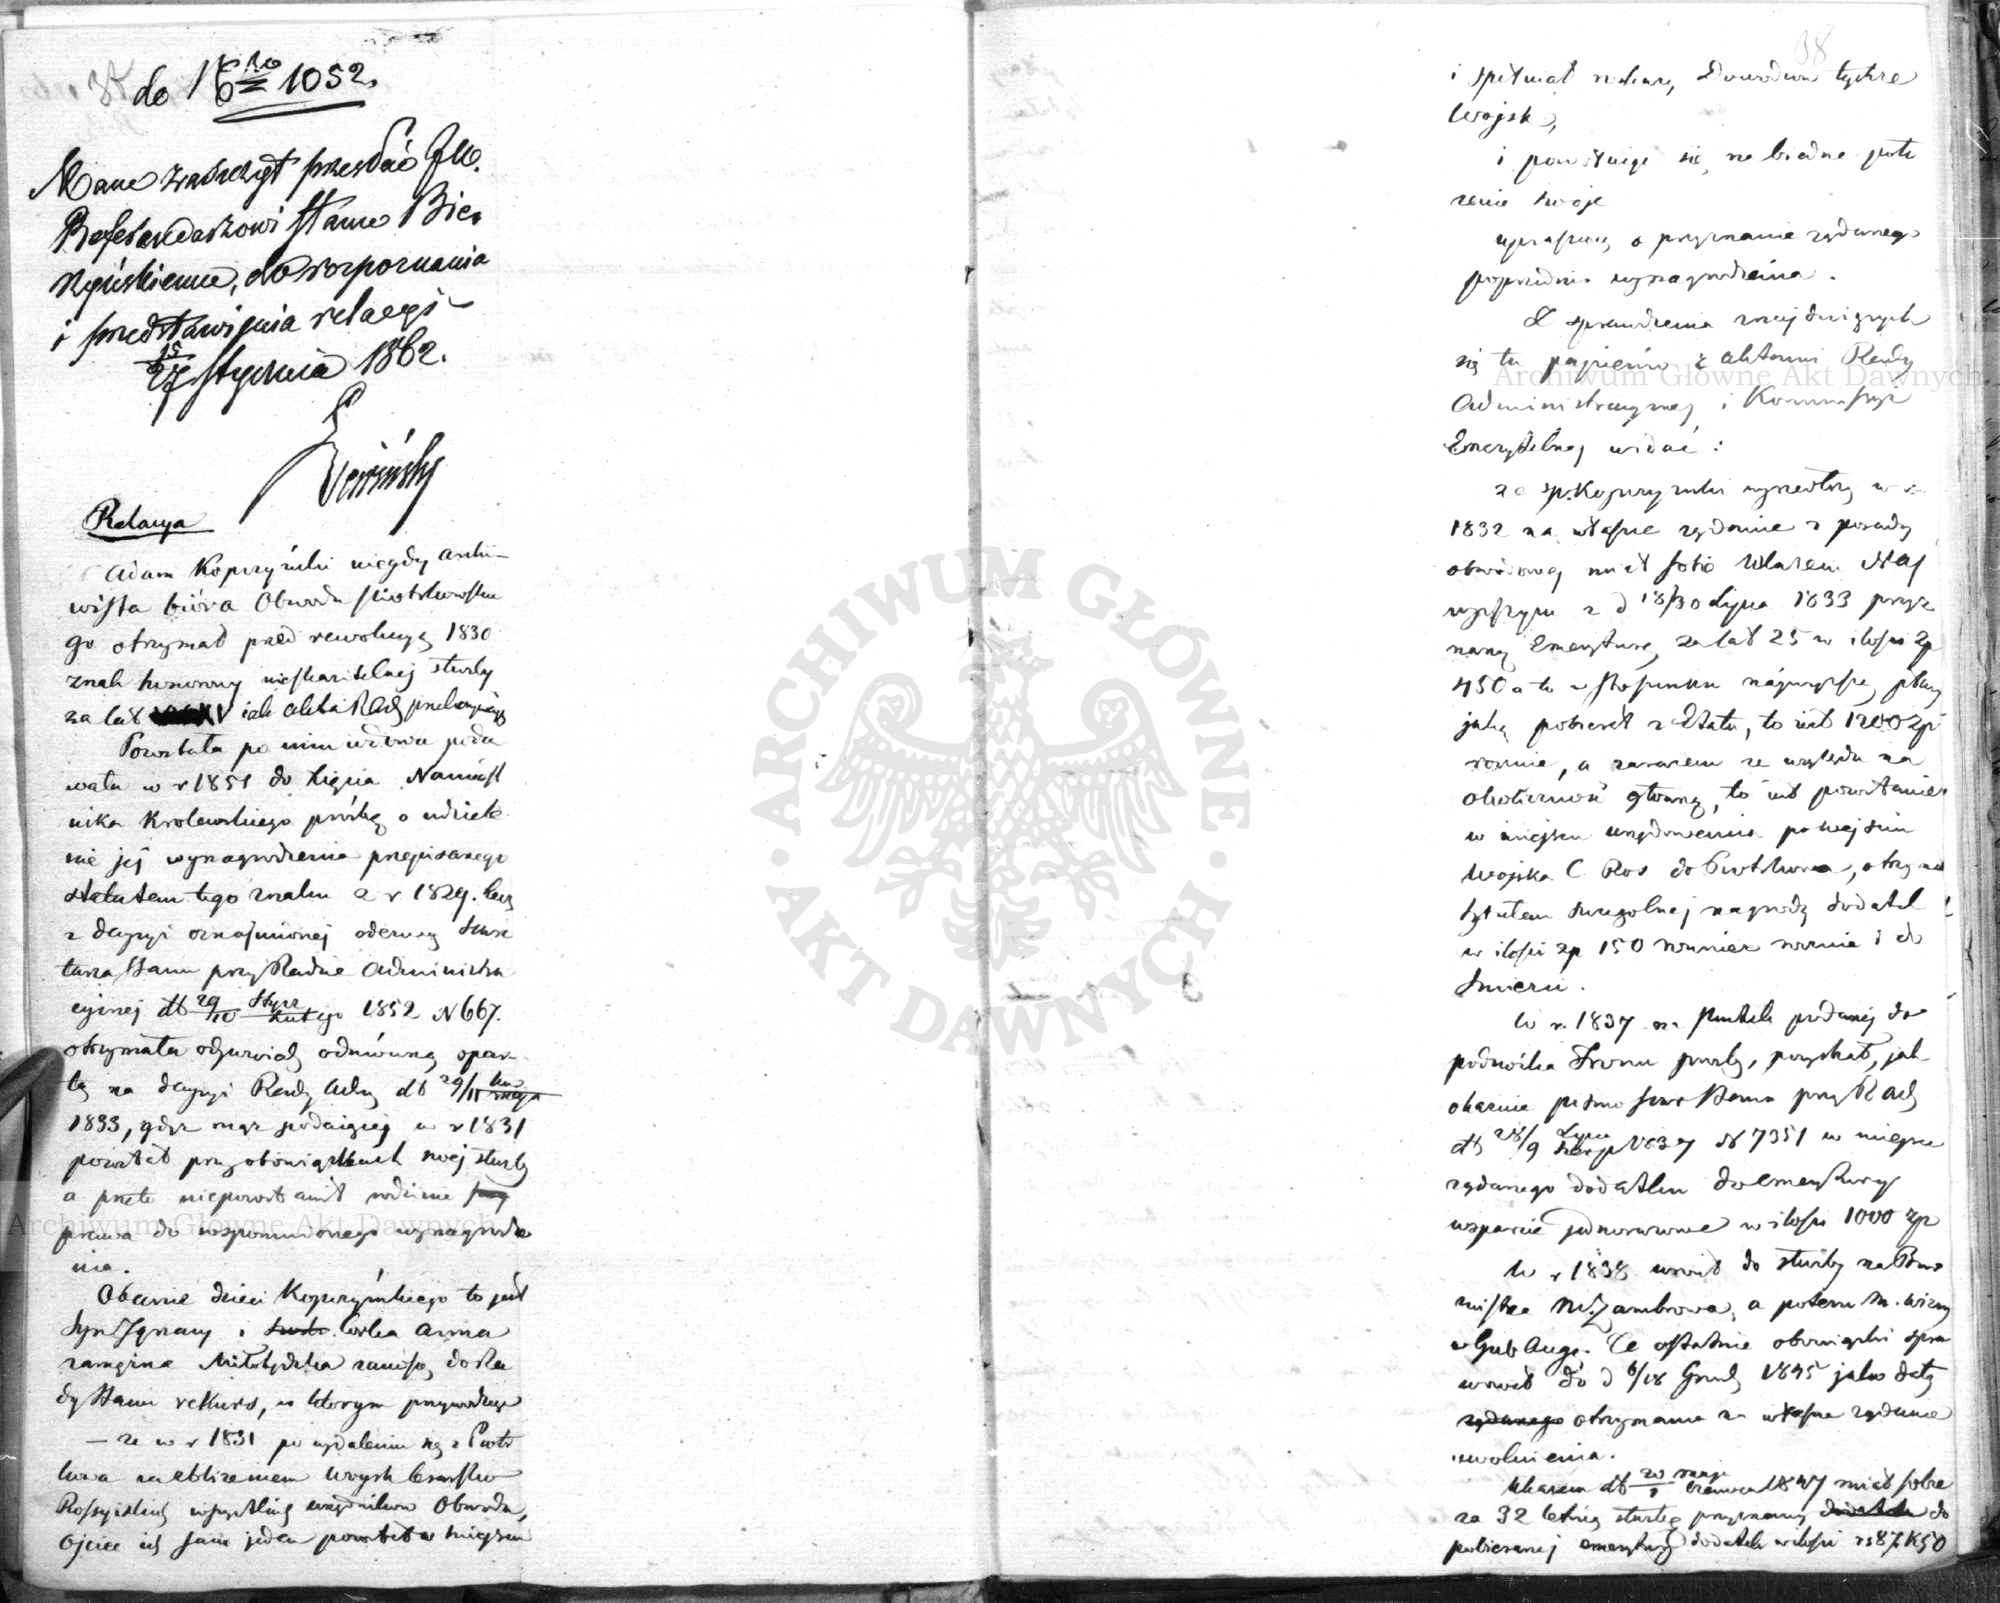 do No 1052.
Mam zaszczyt przesłać JW.
Referendarzowi Stanu Bie
rzyńskiemu, do rozpoznania
i przedstawienia relacyi
15/27 Stycznia 1862.
Relacya
Adam Kopczyński niegdy archi-
wista bióra Obwodu Piotrkowskie
go otrzymał przed rewolucyą 1830
znak honorowy nieskazitelnej służby
za lat XV jak akta Rady przekonywają
Pozostała po nim wdowa poda
wała w r 1851 do Xięcia Namiest
nika Królewskiego prośbę o udziele
nie jej wynagrodzenia przepisanego
statutem tego znaku z r 1829. lecz
z decyzyi oznajmionej odezwą Sekre
tarza Stanu przy Radzie Administra
cyjnej db 29/10 Stycz/Lutego 1852 N 667.
otrzymała odpowiedź odmówną opar-
tą na decyzyi Rady Adm db 29/11
1833, gdyż mąż podającej w r 1831
pozostał przy obowiązkach swej służby
a przeto niepozostawił rodzinie
prawa do wspomnionego wynagrodze
nia.
Obecnie dzieci Kopczyńskiego to jest
Syn Ignacy i córka Anna
zamężna zanoszą do Ra
dy Stanu rekurs, w którym przywodzą
— że w r 1831 po wydaleniu się z Piotr
kowa za zbliżeniem wojsk Cesarsko
Rossyiskich wszystkich urzędników Obwodu,
Ojciec ich sam jeden pozostał w miejscu
38
i spełniał rozkazy Dowódców tychże
Wojsk,
i powołując się na biedne poło
żenie swoje
upraszają o przyznanie żądanego
poprzednio wynagrodzenia.
Z sprawdzenia znajdujących
się tu papierów z aktami Rady
Administracyjnej i Kommissyi
Emerytalnej widać:
że śp. Kopczyński wyszedłszy w r.
1832 na własne żądanie z posady
obwodowej miał sobie Ukazem Naj
wyższym z d 18/30 Lipca 1833 przyz
naną Emeryturę za lat 25 w ilości Zp
450 a to w stosunku najwyższej płacy
jaką pobierał z Etatu, to jest 1200 Zp
rocznie, a zarazem ze względu na
okoliczność główną, to jest pozostanie
w miejscu urzędowania po wejściu
Wojska C. Ros do Piotrkowa, otrzymał
tytułem szczególnej nagrody dodatek
w ilości zp 150 również rocznie i do
śmierci.
W r. 1837 na skutek podanej do
podnóżka Tronu prośby, pozyskał, jak
okazuje pismo Sekr Stanu przy Rady
db 28/9 Lipca/Sierp 1837 N 7351 w miejsce
żądanego dodatku do emerytury
wsparcie jednorazowe w ilości 1000 zp
W r 1838 wrócił do służby na Bur
mistrza M. Zambrowa, a potem M. Wizny
w Gub Augs. Te ostatnie obowiązki spra
wował do d 6/18 Grud 1845 jako daty
żądanego otrzymania na własne żądanie
uwolnienia.
Ukazem db 20 maja/1 czerwca 1847 miał sobie
za 32 letnią służbę przyznany dodatek do
pobieranej emerytury dodatek w ilości rs 87 k 50
ARCHIWUM GŁÓWNE AKT DAWNYCH
Archiwum Główne Akt Dawnych
Archiwum Główne Akt Dawnych